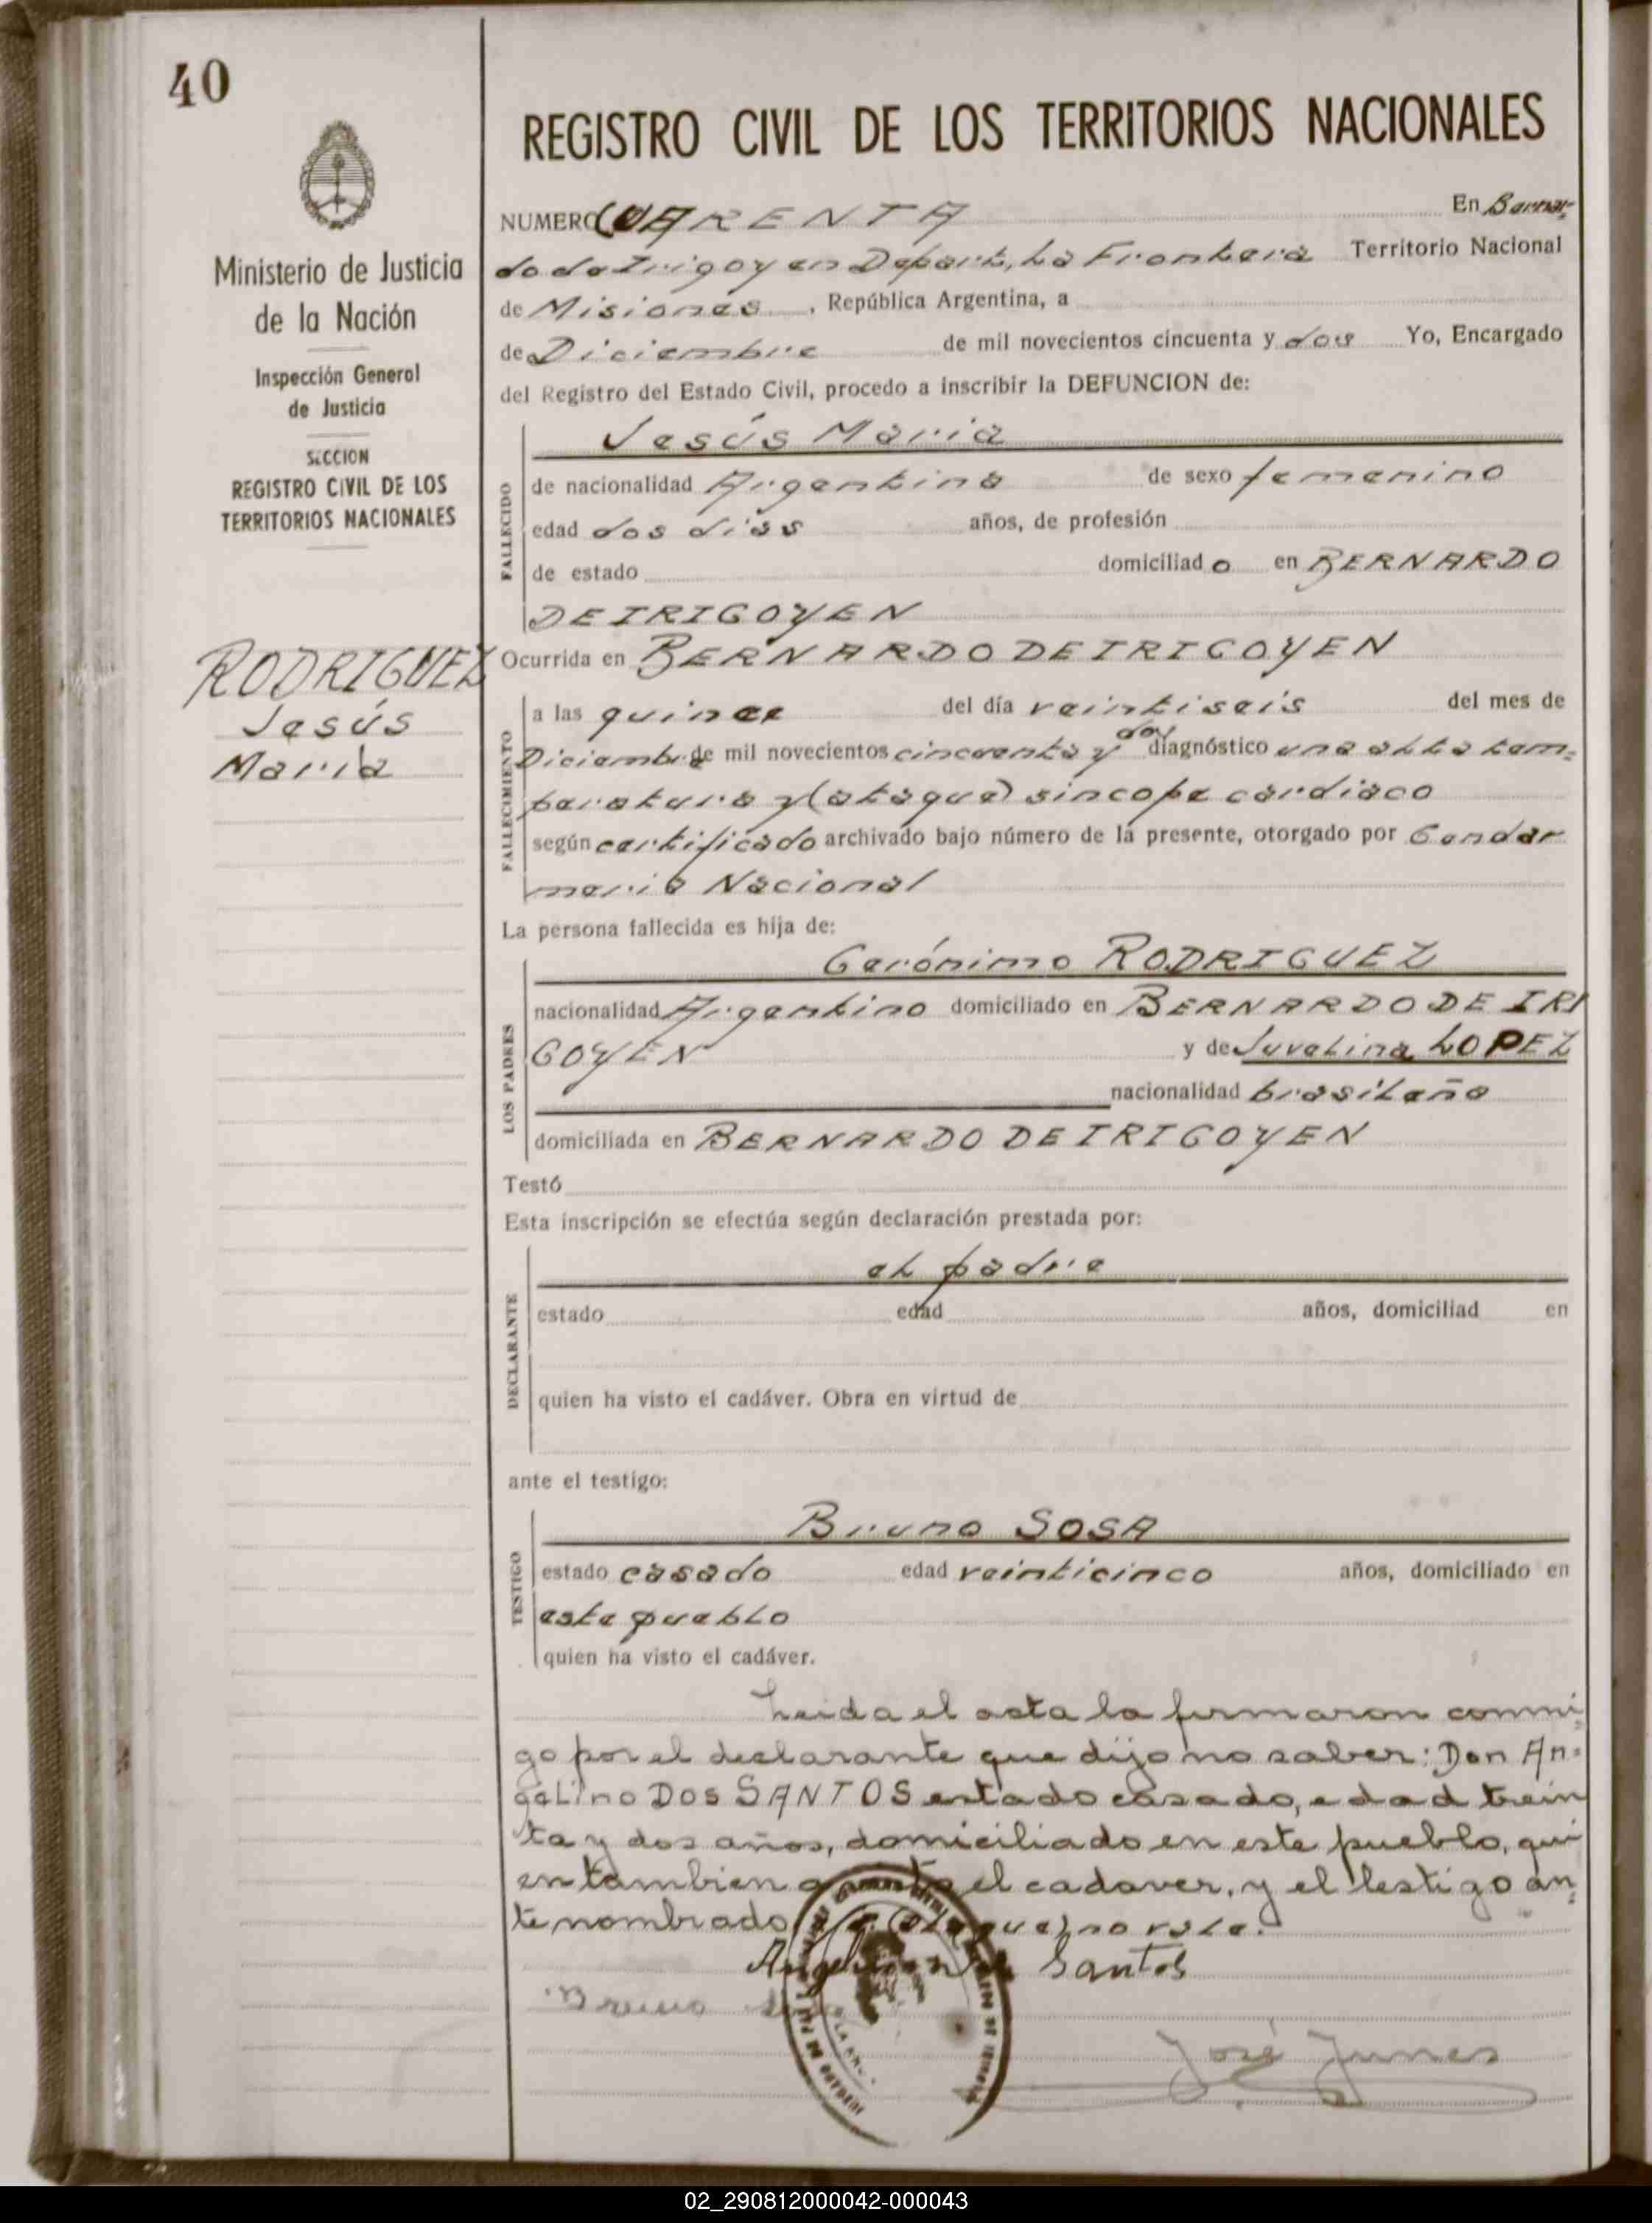 40
Ministerio de Justicia
de la Nación
Inspección General
de Justicia
SECCION
REGISTRO CIVIL DE LOS
TERRITORIOS NACIONALES
RODRIGUEZ
Jesús
María
REGISTRO CIVIL DE LOS TERRITORIOS NACIONALES
NUMERO CUARENTA En Bernar-
do de Irigoyen Depart, La Frontera Territorio Nacional
de Misiones, República Argentina, a
de Diciembre de mil novecientos cincuenta y dos Yo, Encargado
del Registro del Estado Civil, procedo a inscribir la DEFUNCION de:
Jesús María
FALLECIDO
de nacionalidad Argentina de sexo femenino
edad dos dias años, de profesión
de estado domiciliado en BERNARDO
DE IRIGOYEN
Ocurrida en BERNARDO DE IRIGOYEN
FALLECIMIENTO
a las quince del día veintiseis del mes de
Diciembre de mil novecientos cincuenta y dos diagnóstico una alta tem=
peratura y (ataque) sincope cardiaco
según certificado archivado bajo número de la presente, otorgado por Gendar
meria Nacional
La persona fallecida es hija de:
LOS PADRES
Gerónimo RODRIGUEZ
nacionalidad Argentino domiciliado en BERNARDO DE IRI
GOYEN y de Juvelina LOPEZ
nacionalidad brasileña
domiciliada en BERNARDO DE IRIGOYEN
Testó
Esta inscripción se efectúa según declaración prestada por:
DECLARANTE
el padre
estado edad años, domiciliad en
quien ha visto el cadáver. Obra en virtud de
ante el testigo:
TESTIGO
Bruno SOSA
estado casado edad veinticinco años, domiciliado en
este pueblo
quien ha visto el cadáver.
Leida el acta la firmaron conmi=
go por el declarante que dijo no saber: Don An=
geLino DOS SANTOS estado casado, edad trein
ta y dos años, domiciliado en este pueblo, qui
en tambien el cadaver, y el testigo an=
tenombrado, (ataque) no vale.
Santos
Bruno
José Junes
02_290812000042-000043